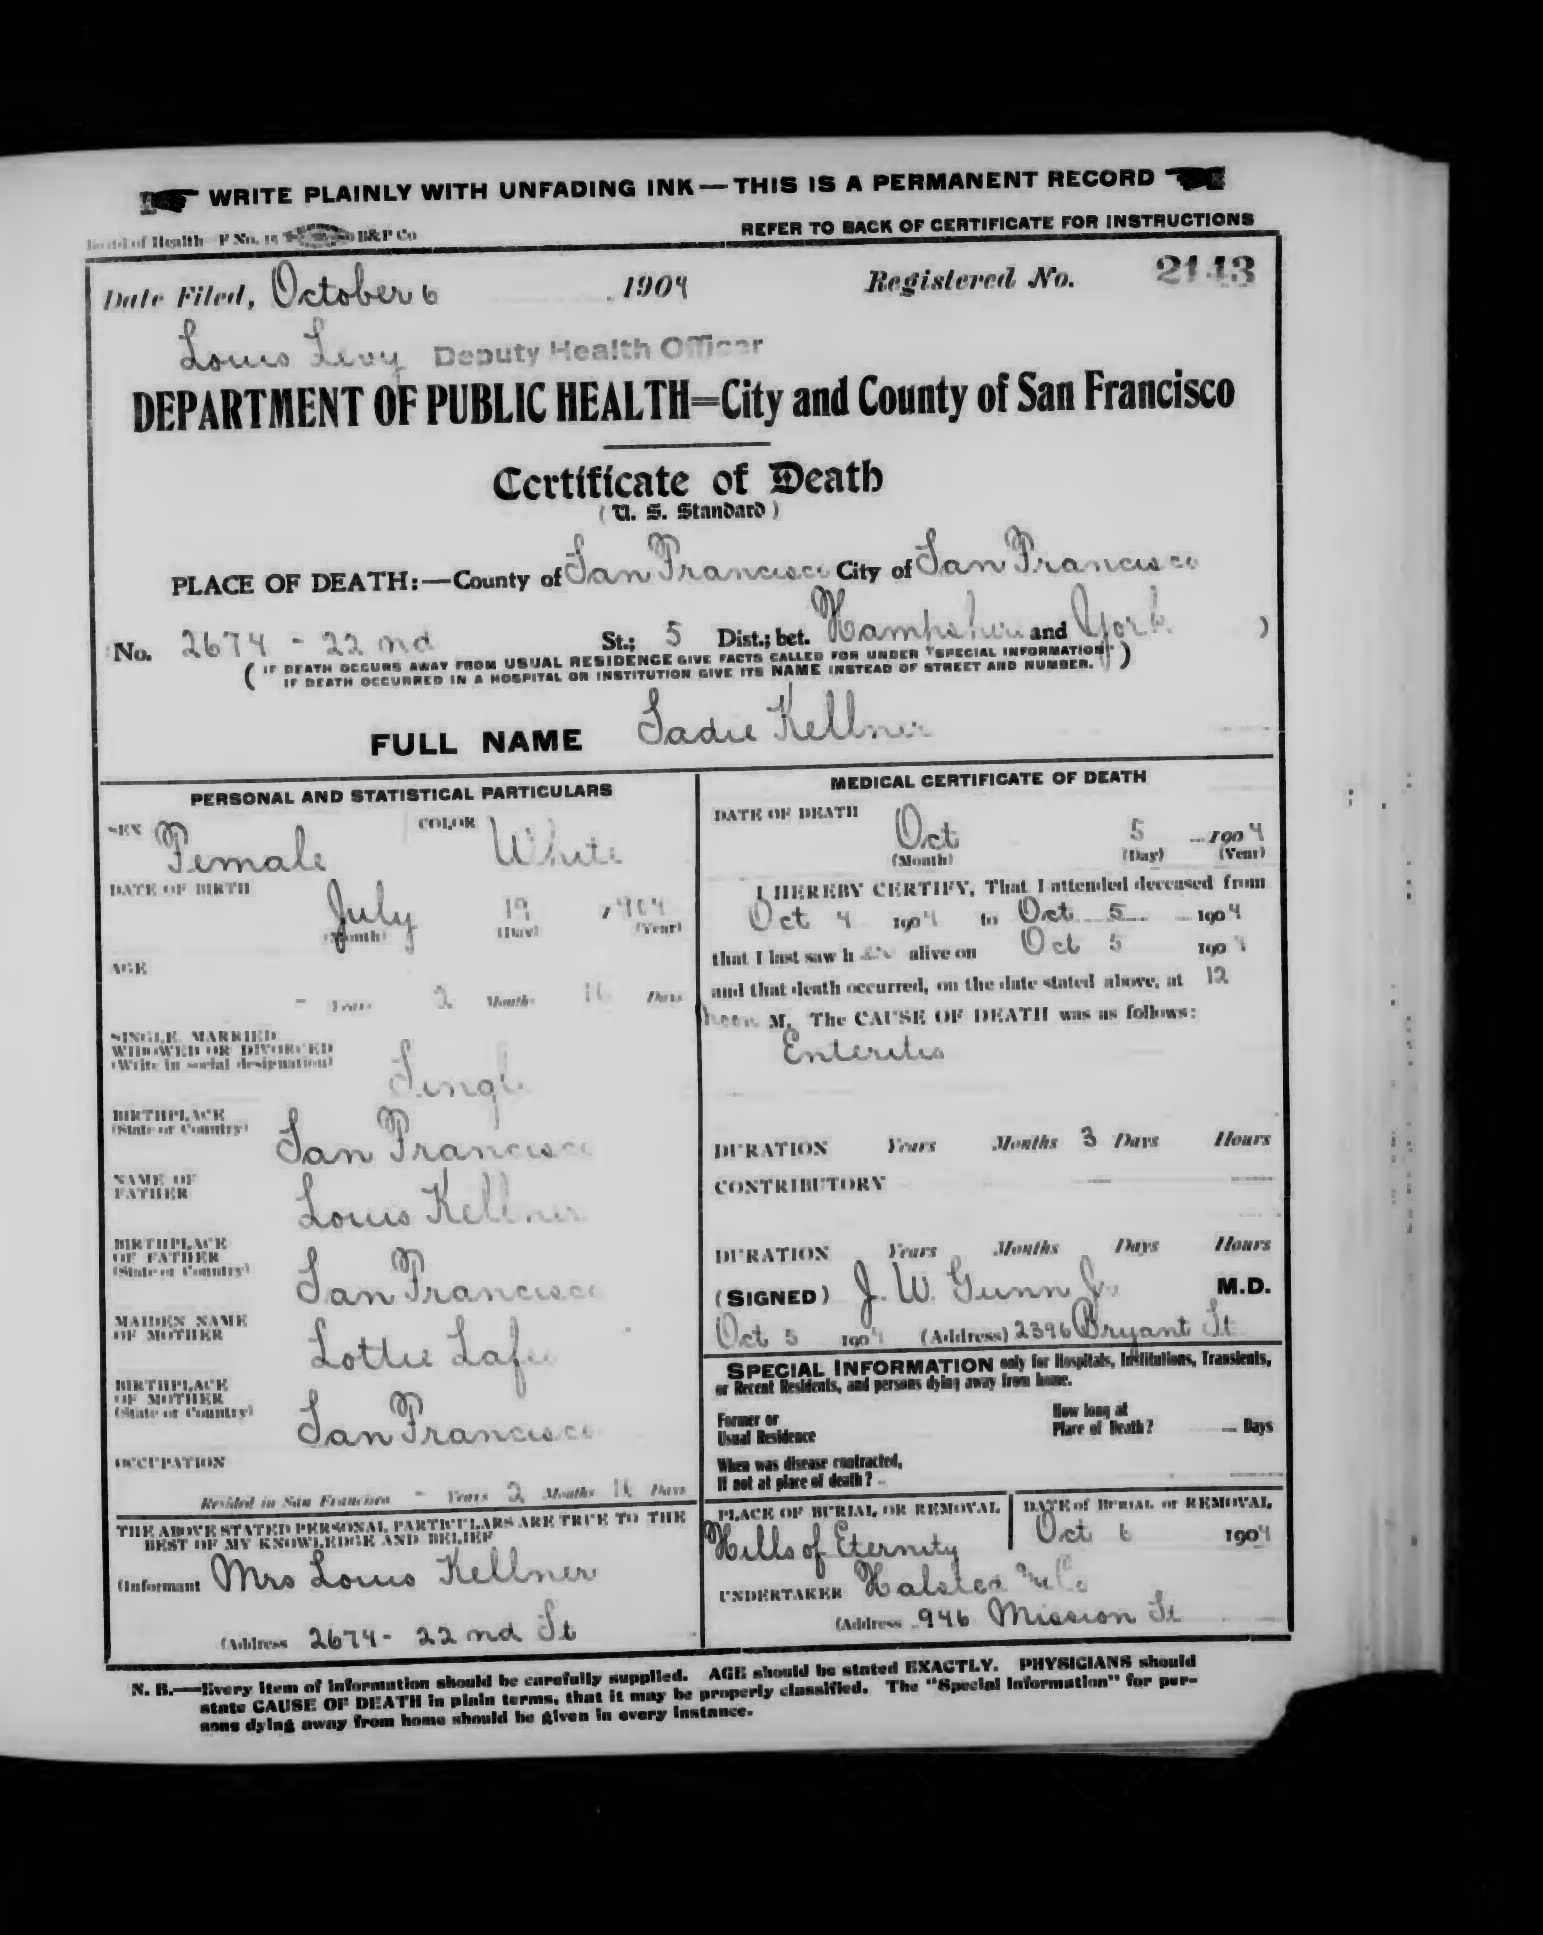 WRITE PLAINLY WITH UNFADING INK—THIS IS A PERMANENT RECORD
Board of Health—F No. 15 B&P Co
REFER TO BACK OF CERTIFICATE FOR INSTRUCTIONS
Date Filed, October 6, 1904 Registered No. 2143
Louis Levy Deputy Health Officer
DEPARTMENT OF PUBLIC HEALTH=City and County of San Francisco
Certificate of Death
(U. S. Standard)
PLACE OF DEATH:—County of San Francisco City of San Francisco
No. 2674 - 22 nd St.; 5 Dist.; bet. Hampshire and York )
( IF DEATH OCCURS AWAY FROM USUAL RESIDENCE GIVE FACTS CALLED FOR UNDER "SPECIAL INFORMATION" )
IF DEATH OCCURRED IN A HOSPITAL OR INSTITUTION GIVE ITS NAME INSTEAD OF STREET AND NUMBER.
FULL NAME Sadie Kellner
PERSONAL AND STATISTICAL PARTICULARS
SEX Female COLOR White
DATE OF BIRTH
July 19, 1904
(Month) (Day) (Year)
AGE
- Years 2 Months 16 Days
SINGLE, MARRIED
WIDOWED OR DIVORCED
(Write in social designation)
Single
BIRTHPLACE
(State or Country)
San Francisco
NAME OF
FATHER
Louis Kellner
BIRTHPLACE
OF FATHER
(State or Country)
San Francisco
MAIDEN NAME
OF MOTHER
Lottie
BIRTHPLACE
OF MOTHER
(State or Country)
San Francisco
OCCUPATION
Resided in San Francisco - Years 2 Months 16 Days
THE ABOVE STATED PERSONAL PARTICULARS ARE TRUE TO THE
BEST OF MY KNOWLEDGE AND BELIEF
(Informant Mrs Louis Kellner
(Address 2674- 22 nd St
MEDICAL CERTIFICATE OF DEATH
DATE OF DEATH
Oct 5 1904
(Month) (Day) (Year)
I HEREBY CERTIFY, That I attended deceased from
Oct 4 1904 to Oct 5 1904
that I last saw her alive on Oct 5 1904
and that death occurred, on the date stated above, at 12
noon M. The CAUSE OF DEATH was as follows:
Enteritis
DURATION Years Months 3 Days Hours
CONTRIBUTORY
DURATION Years Months Days Hours
(SIGNED) J. W. Gunn Jr. M.D.
Oct 5 1904 (Address) 2396 Bryant St
SPECIAL INFORMATION only for Hospitals, Institutions, Transients,
or Recent Residents, and persons dying away from home.
Former or
Usual Residence
How long at
Place of Death? — Days
When was disease contracted,
If not at place of death?
PLACE OF BURIAL OR REMOVAL
Hills of Eternity
DATE of BURIAL or REMOVAL
Oct 6 1904
UNDERTAKER Halsted & Co
(Address 946 Mission St
N. B.—Every item of information should be carefully supplied. AGE should be stated EXACTLY. PHYSICIANS should
state CAUSE OF DEATH in plain terms, that it may be properly classified. The "Special Information" for per-
sons dying away from home should be given in every instance.